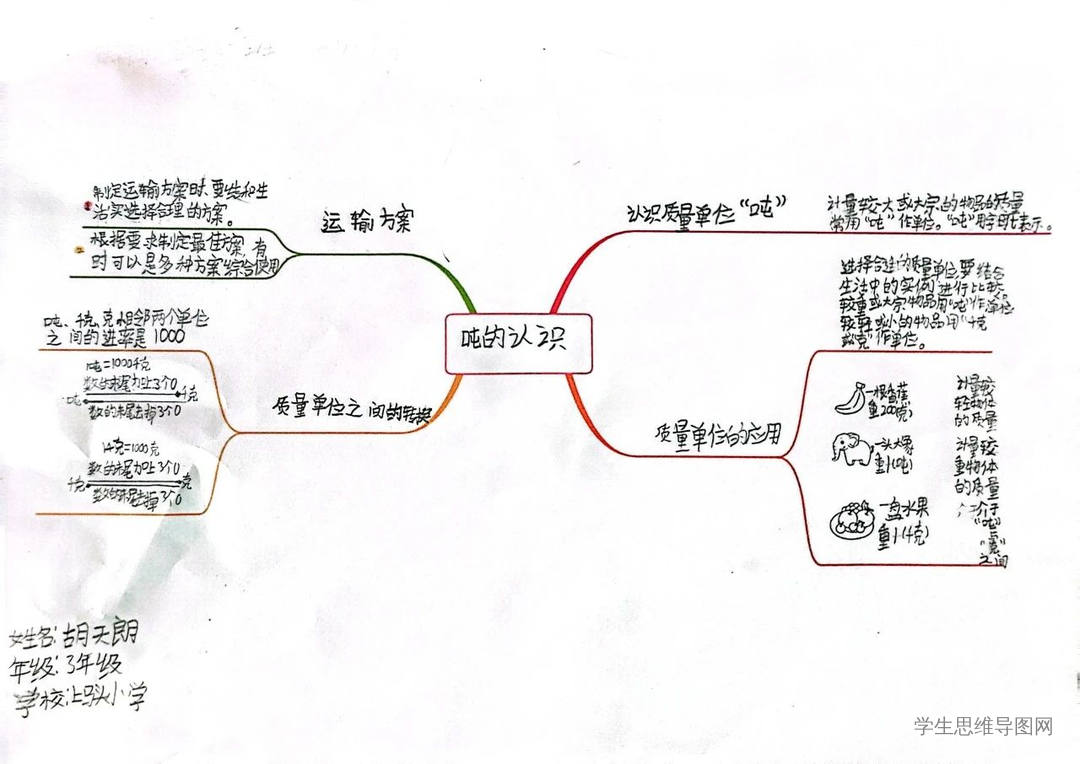 吨的认识
认识质量单位“吨”
计量较大或大宗的物品的质量
常用“吨”作单位。“吨”用字母t表示。
质量单位的应用
选择合适的质量单位要结合
生活中的实例进行比较。
较重或大宗物品用“吨”作单位
较轻或小的物品用“千克
或克”作单位。
一根香蕉
重200(克)
计量较
轻物体
的质量
一头大象
重1(吨)
计量较
重物体
的质量
一盘水果
重1(千克)
介于
“吨”
与
“克”
之间
运输方案
制定运输方案时、要结和生
活实选择合理的方案。
根据要求制定最佳方案,有
时可以是多种方案综合使用
质量单位之间的转换
吨、千克、克相邻两个单位
之间的进率是1000
1吨=1000千克
数的末尾加上3个0
吨
千克
数的末尾去掉3个0
1千克=1000克
数的末尾加上3个0
千克
克
数的末尾去掉3个0
姓名:胡天朗
年级:3年级
学校:上马头小学
学生思维导图网